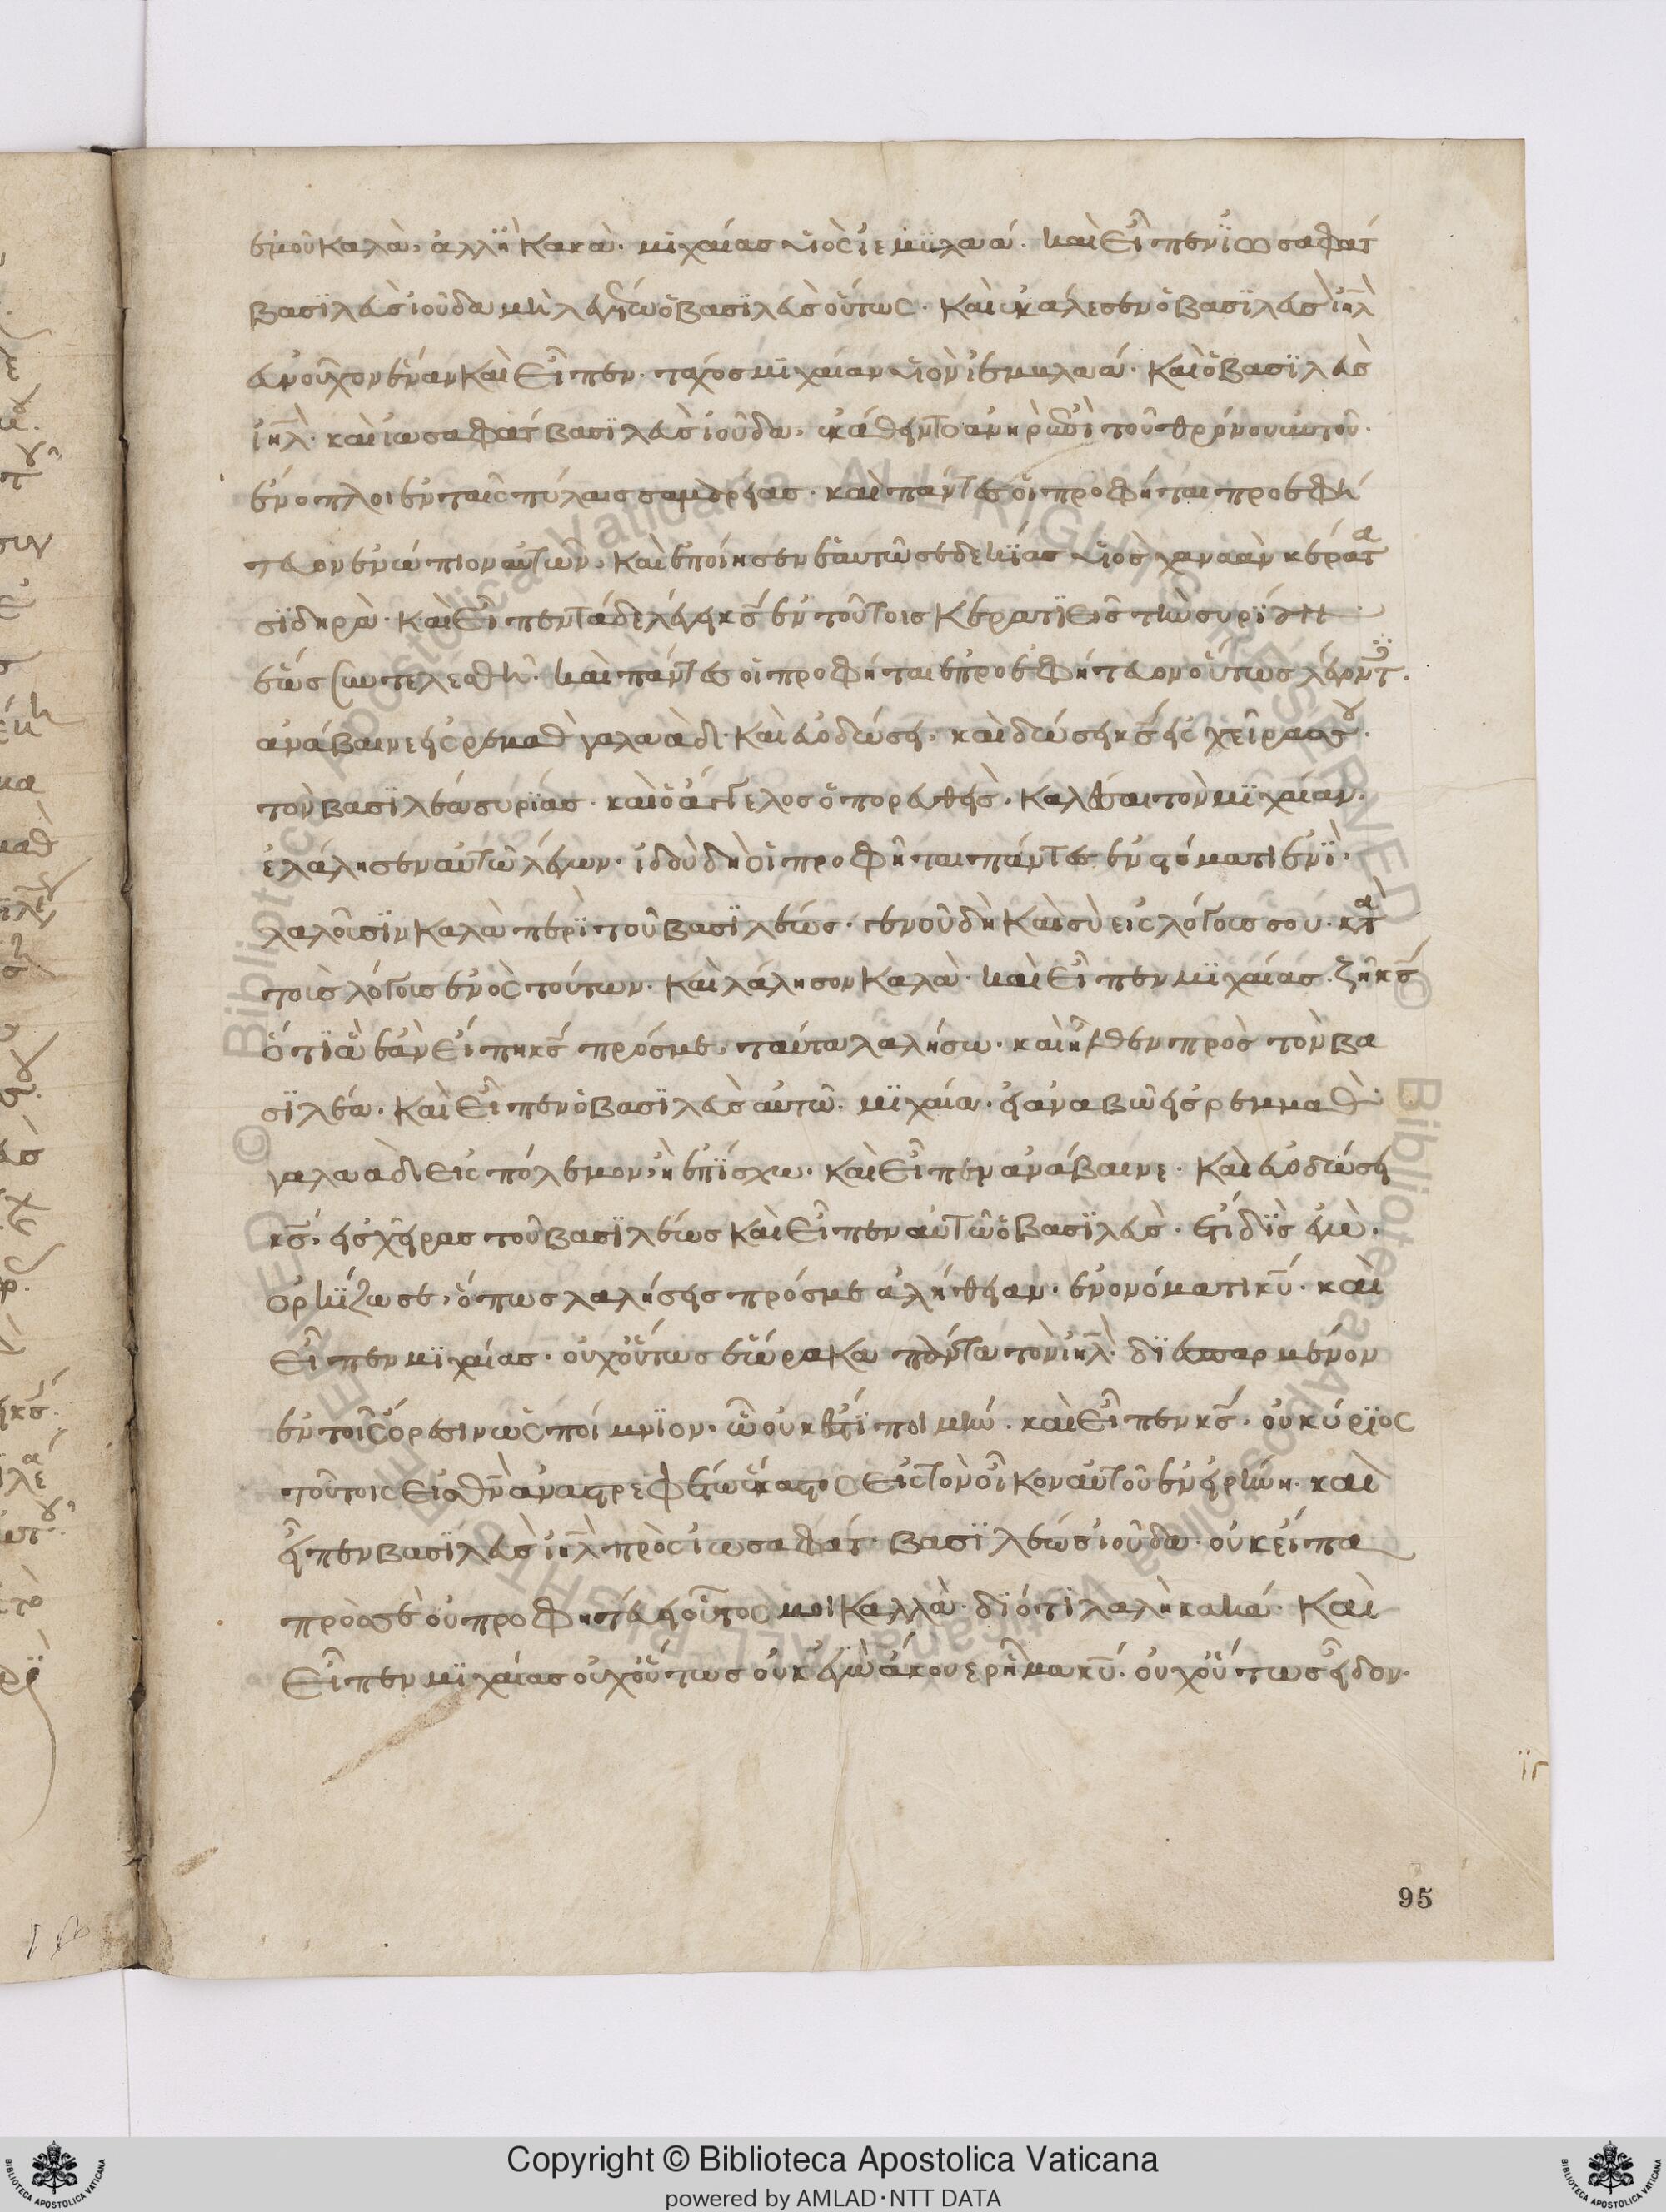 ἐμοῦ καλὰ, ἀλλ' ἢ κακὰ· μιχαίας υἱὸς ἰεμϊλαά. καὶ εἶπεν ϊωσαφατ
βασϊλευς ἰούδα μὴ λεγέτω ὁ βασϊλευς οὕτως· καὶ ἐκάλεσεν ὁ βασϊλευς ἰηλ
εὐνοῦχον ἕναν καὶ εἶπεν· ταχος μϊχαίαν υἱὸν ἰεμηλαά· καὶ ὁ βασϊλευς
ἰηλ· καὶ ἰωσαφατ βασϊλευς ἰούδα, ἐκάθηντο ἀνὴρ ἐπὶ τοῦ θρόνου αὐτοῦ·
ἐνοπλοι ἐν ταῖς πύλαις σαμαρείας· καὶ πάντες οἱ προφῆται προεφή
τευον ἐνώπιον αὐτῶν· καὶ ἐποίησεν ἑαυτῶ σεδεκϊας υἱὸς χαναὰν κέρατα
σϊδηρὰ· καὶ εἶπεν τάδε λέγει κς ἐν τούτοις κερατϊεῖς τὴν συρίαν
ἕως συντελεσθῆ· καὶ πάντες οἱ προφῆται ἐπροεφήτευον οὕτως λέγοντες.
ἀνάβαινε εἰς ρεμαθ γαλααδι καὶ εὐοδώσει, καὶ δώσει κς εἰς χεῖρας σου.
τὸν βασϊλέα συρίας· καὶ ὁ ἄγγελος ὁ πορευθεὶς. καλέσαι τὸν μϊχαίαν.
ἐλάλησεν αὐτῶ λέγων· ἰδοὺ δὴ οἱ προφῆται πάντες ἐν στόματι ἐνϊ.
λαλοῦσϊν καλὰ περϊ τοῦ βασϊλέως· γενοῦ δὴ καὶ σὺ εἰς λόγους σου· κατὰ
τοὺς λόγους ἑνὸς τούτων· καὶ λάλησον καλὰ· καὶ εἶπεν μϊχαίας. ζῆ κς
ὅτϊ ἃ ἐὰν εἴπη κς πρόσμε, ταῦτα λαλήσω· καὶ ἦλθεν πρὸς τὸν βα
σϊλέα· καὶ εἶπεν ὁ βασϊλευς αὐτῶ. μϊχαία· εἰ ἀναβῶ εἰς ρεμμαθ
γαλααδι εἰς πόλεμον, ἢ ἐπϊσχω· καὶ εἶπεν ἀνάβαινε· καὶ εὐοδώσει
κς, εἰς χεῖρας τοῦ βασϊλέως καὶ εἶπεν αὐτῶ ὁ βασϊλευς· ἔτι δϊς ἐγὼ·
ὁρκίζω σε, ὅπως λαλήσεις πρόσμε ἀλήθειαν· ἐν ονόματι κυ· καὶ
εἶπεν μϊχαίας· οὐχ οὕτως ἑώρακα πάντα τὸν ιηλ· δϊεσπαρμένον
ἐν τοῖς ὄρεσιν ὡς ποίμνϊον· ὧ οὐκ ἔστϊ ποιμήν· καὶ εἶπεν κς· οὐ κύρϊος
τούτοις εἰσθν ἀναστρεφέτω ἕκαστος εἰς τὸν οἶκον αὐτοῦ ἐν εἰρήνη· καὶ
εἶπεν βασϊλευς ιηλ πρὸς ἰωσαφατ· βασϊλέως ἰούδα· οὐκ εἶπα
πρὸς σὲ οὐ προφητεύει οὗτος μοι καλλὰ· δϊότϊ λαλῆ κακά· καὶ
εἶπεν μϊχαίας οὐχ οὕτως οὐκ ἐγὼ ἄκουε ρῆμα κυ· οὐχ οὕτως εἶδον·
95
Copyright © Biblioteca Apostolica Vaticana
powered by AMLAD·NTT DATA